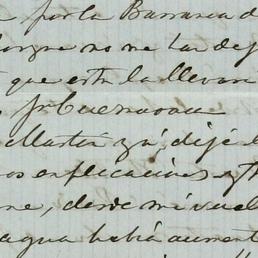 por la Barranca d
porque no me han dej
que esta la llevan
por Cuernavaca
Martin ya dejé l
os esplicaciones y
me, desde mi vuel
agua habia aument